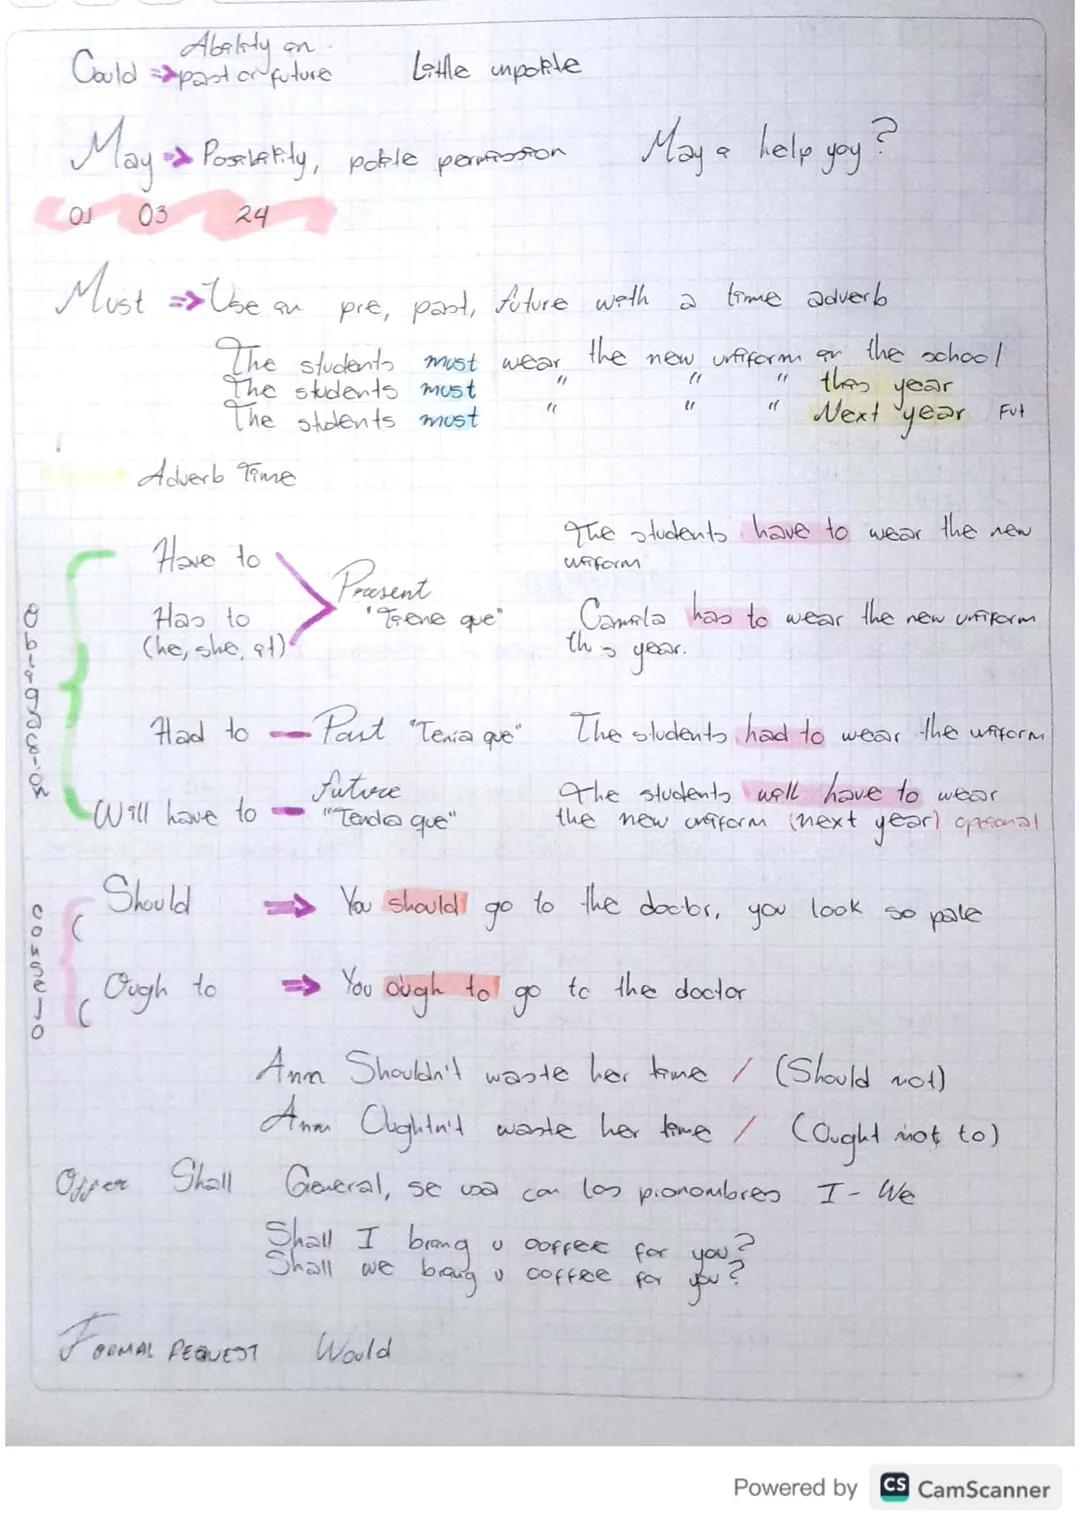 Could => Ability in past or future Little unpolite
May => Posibility, polite permission May i help you?
01 03 24
Must => Use in pre, past, future with a time adverb
The students must wear the new uniform in the school
The students must " " " this year
The students must " " " Next year Fut
Adverb Time
Obligación
Have to
Has to
(he, she, it)
Present
"Tiene que"
The students have to wear the new
uniform
Camila has to wear the new uniform
this year.
Had to — Past "Tenia que" The students had to wear the uniform
Will have to — future "Tendra que" The students will have to wear
the new uniform (next year) opsional
Consejo
Should => You should go to the doctor, you look so pale
Ough to => You ough to go to the doctor
Ann Shouldn't waste her time / (Should not)
Ann Oughtn't waste her time / (Ought not to)
Offer Shall General, se usa con los pronombres I - We
Shall I bring u coffee for you?
Shall we bring u coffee for you?
FORMAL REQUEST Would
Powered by CS CamScanner